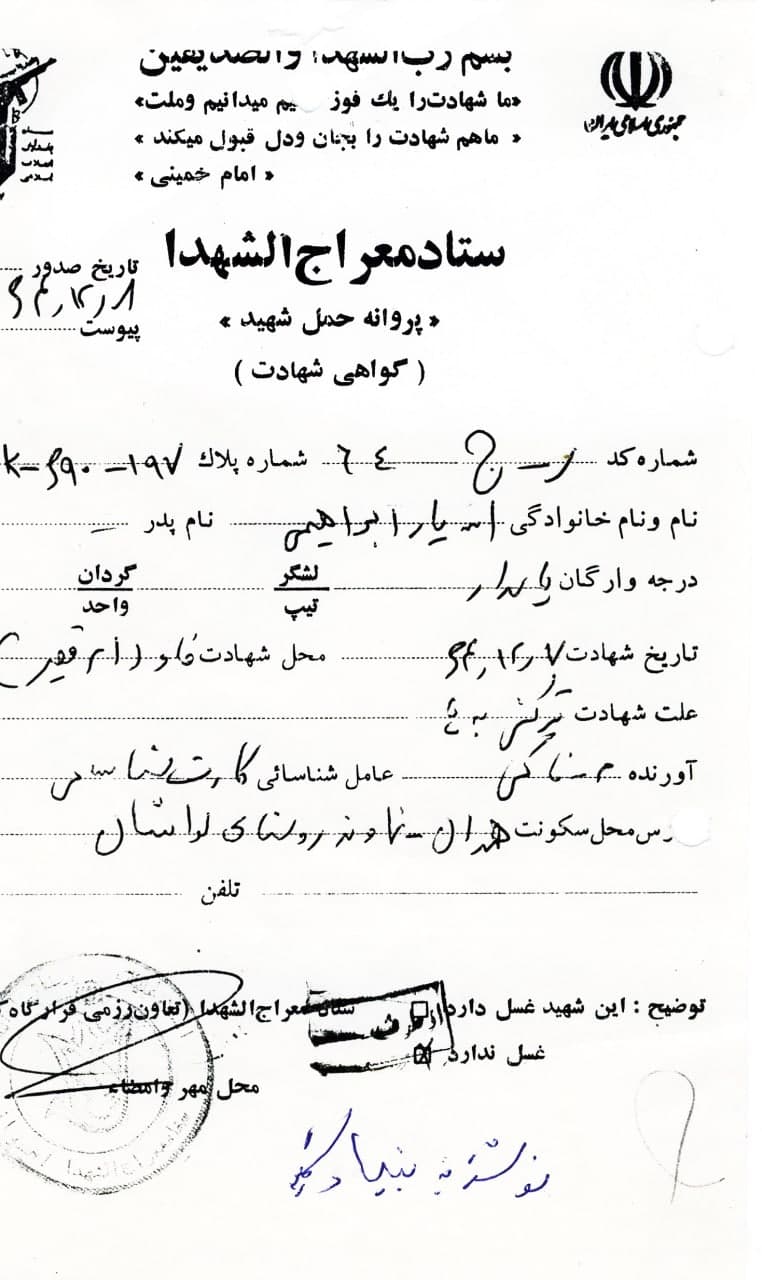 بسم رب الشهداء والصدیقین
«ما شهادت را یك فوز یم میدانیم وملت»
« ماهم شهادت را بجان ودل قبول میکند »
« امام خمینی »
جمهوری اسلامی ایران
ستاد معراج الشهدا
تاریخ صدور
۶۴٫۱۲٫۸
پیوست
« پروانه حمل شهید »
( گواهی شهادت )
شماره کد ج ٦٤ شماره پلاك ۱۹۷-۶۹۰-K
نام ونام خانوادگی اسدیار ابراهیمی نام پدر —
درجه وارگان پاسدار لشگر تیپ گردان واحد
تاریخ شهادت ۶۴٫۱۲٫۷ محل شهادت فاو (ام قصر)
علت شهادت ترکش به
آورنده عامل شناسائی کارت شناسایی
رس محل سکونت همدان - نهاوند روستای لواشان
تلفن
توضیح : این شهید غسل دارد ستاد معراج الشهدا (تعاون رزمی قرارگاه
غسل ندارد
محل مهر وامضاء